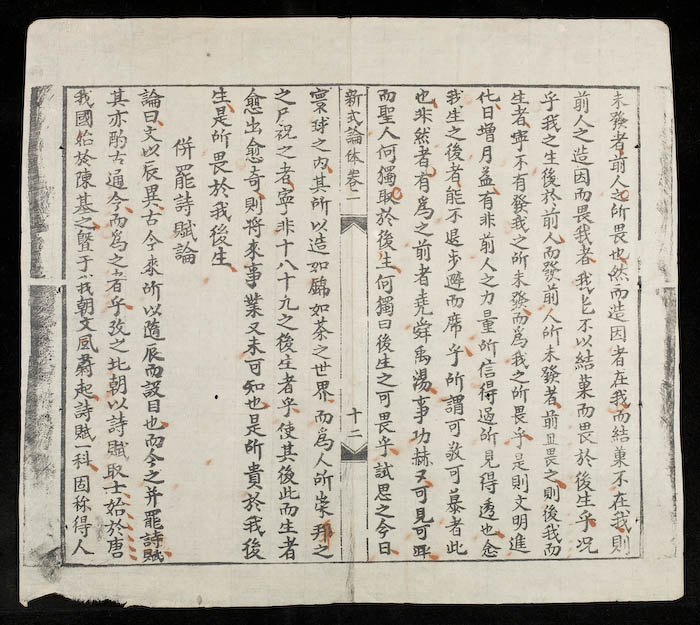 未發者前人之所畏也然而造因者在我而結菓不在我則
前人之造因而畏我者我能不以結菓而畏於後生乎况
乎我之生後於前人而發前人所未發者前且畏之則後我而
生者寧不有發我之所未發而爲我之所畏乎是則文明進
化日增月益有非前人之力量所信得過所見得透也愈
我生之後者能不退步避而席乎所謂可敬可慕者此
也非然者有爲之前者堯舜禹湯事功赫又可見可畔
而聖人何獨取於後生何獨曰後生之可畏乎試思之今日
新式論体卷二
十二
寰球之内其所以造如錦如荼之世界而爲人所崇拜之
之尸祝之者寧非十八十九之後生者乎使其後此而生者
愈出愈奇則將來事業又未可知也是所貴於我後
生是所畏於我後生
併罷詩賦論
論曰文以辰異古今來所以隨辰而設目也而今之并罷詩賦
其亦酌古通今而爲之者乎攷之北朝以詩賦取士始於唐
我國始於陳基之暨于我朝文風蔚起詩賦一科固称得人